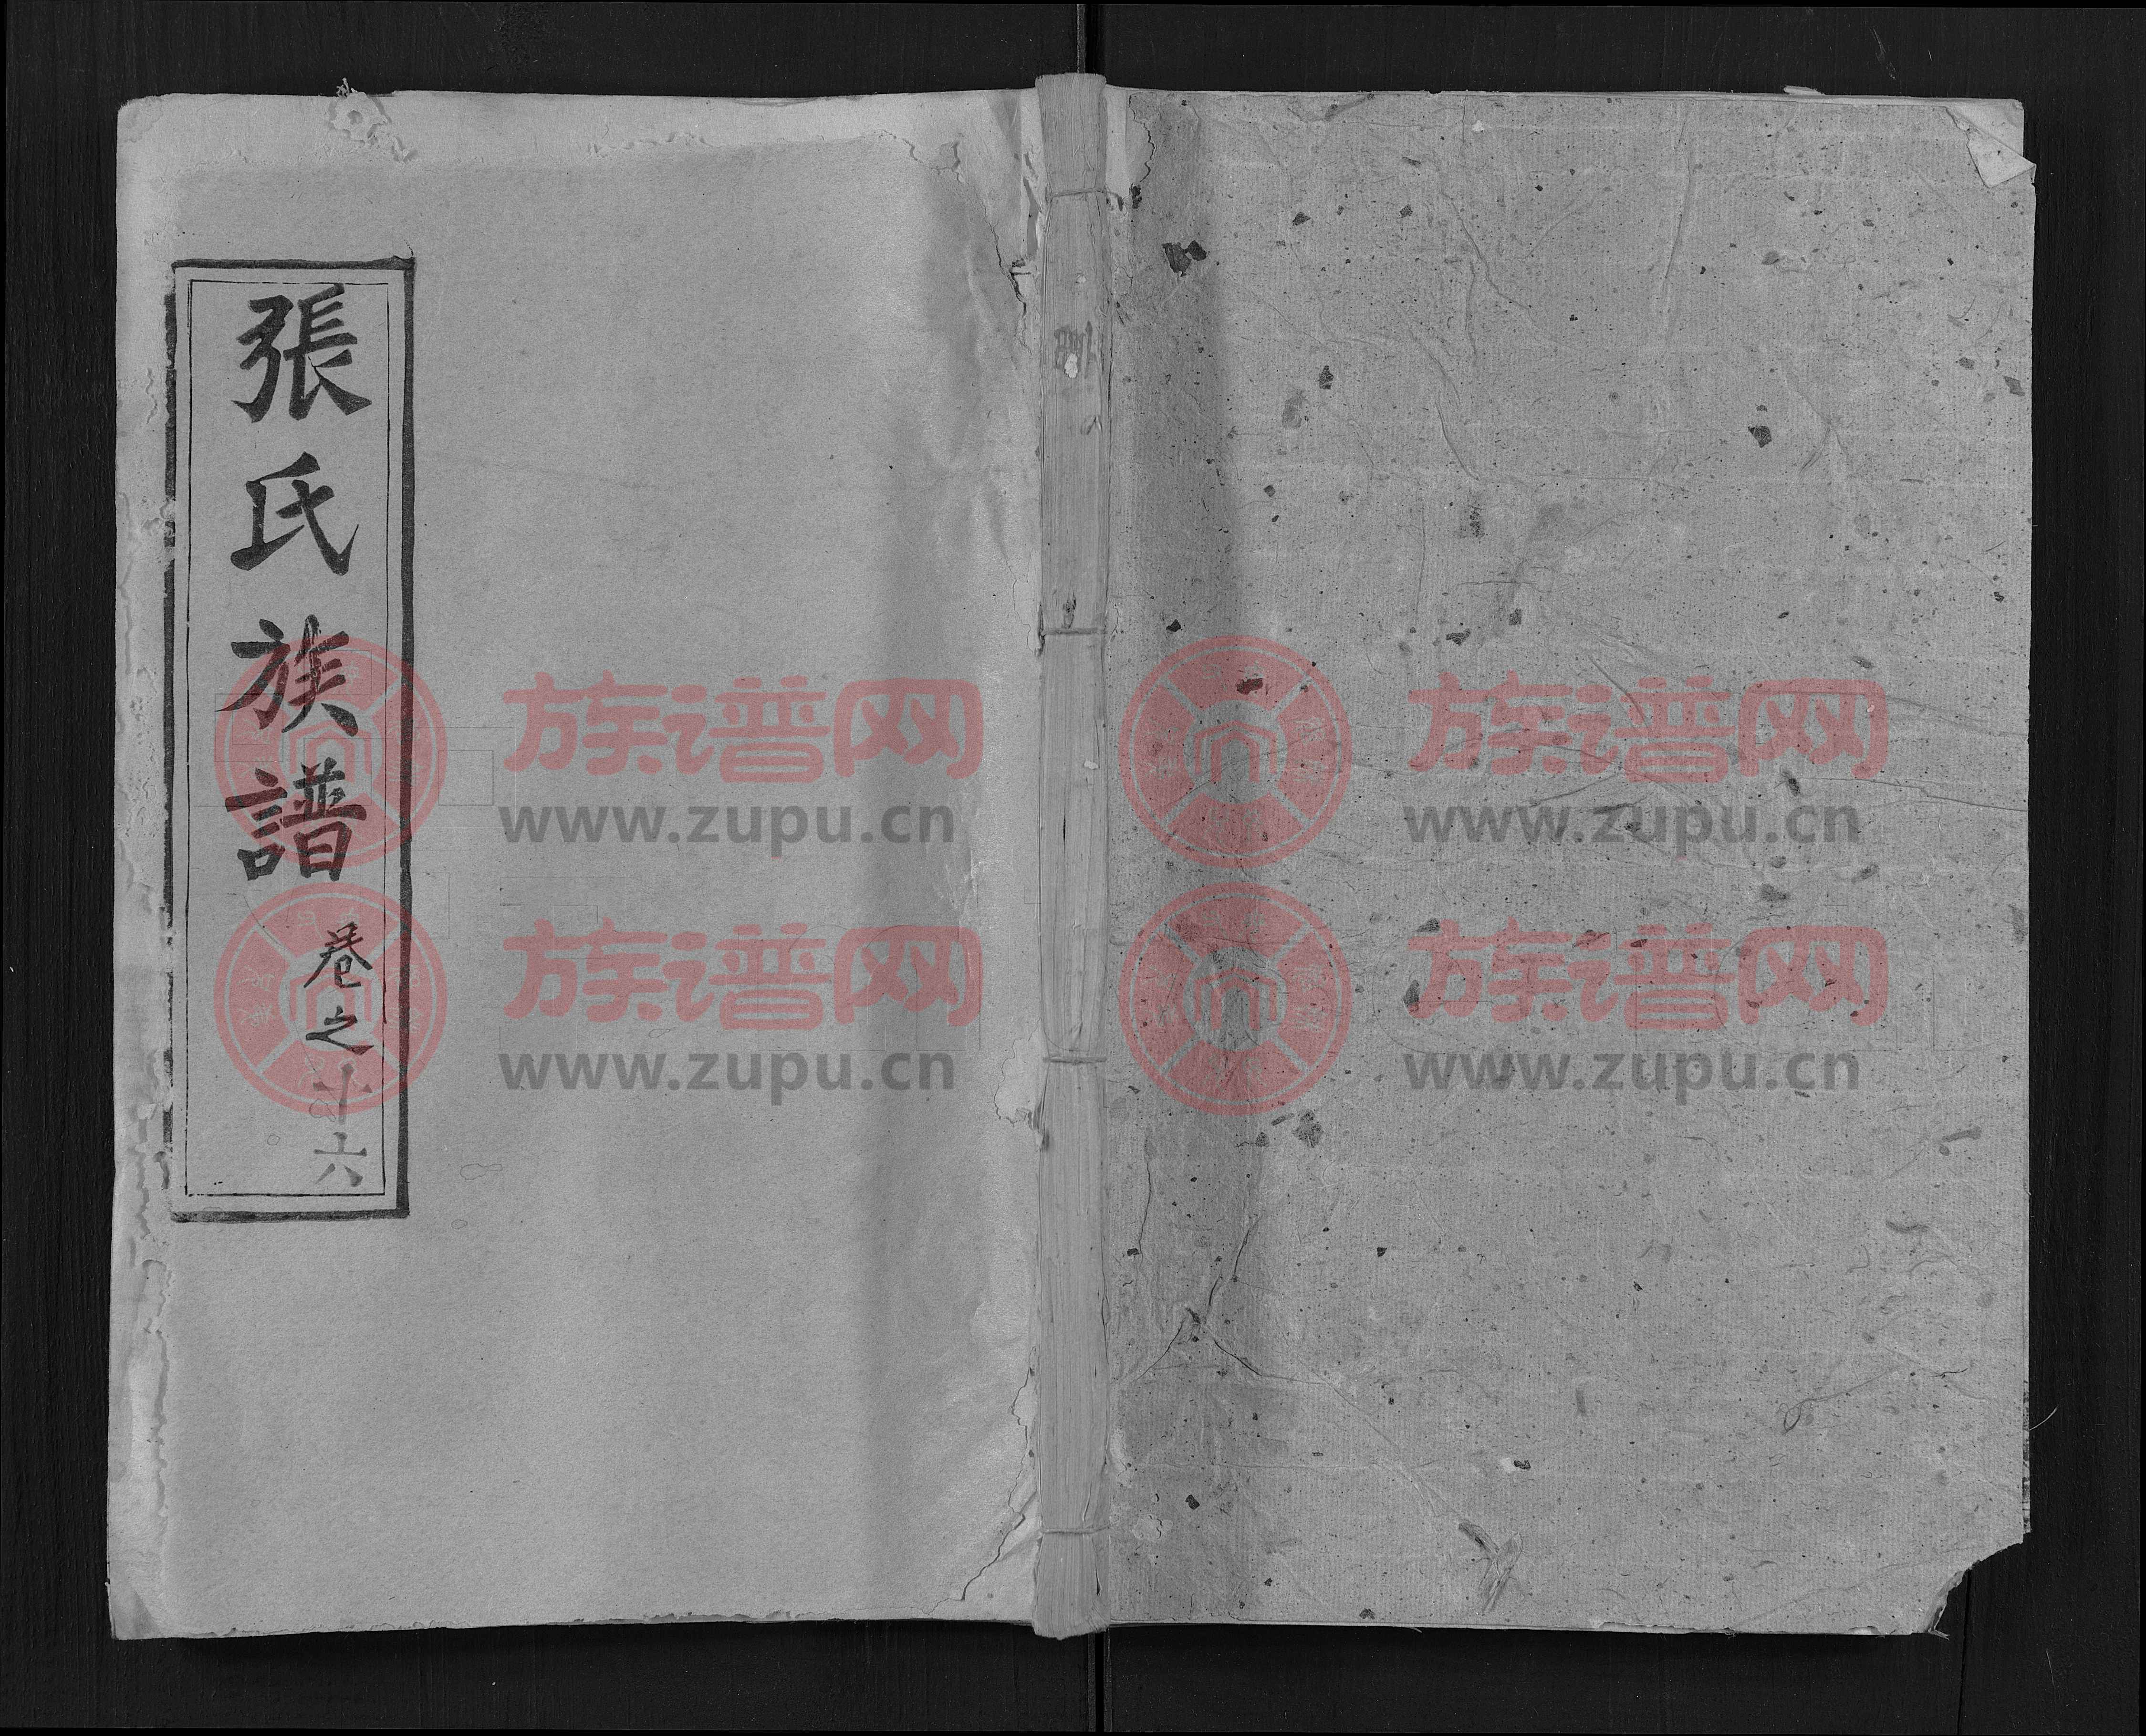 張氏族譜
卷之十六
族谱网
www.zupu.cn
族谱网
www.zupu.cn
族谱网
www.zupu.cn
族谱网
www.zupu.cn